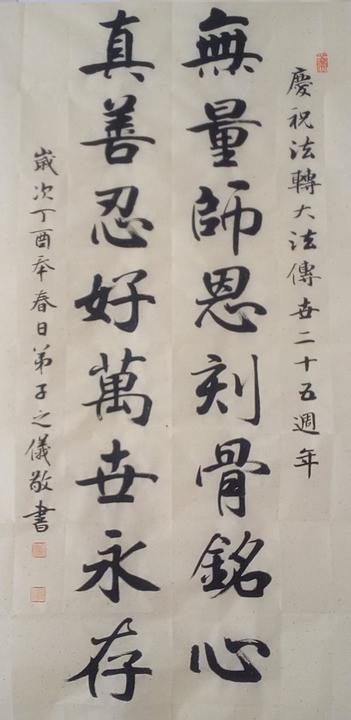 慶祝法轉大法傳世二十五週年
無量師恩刻骨銘心
真善忍好萬世永存
歲次丁酉年春日弟子之儀敬書